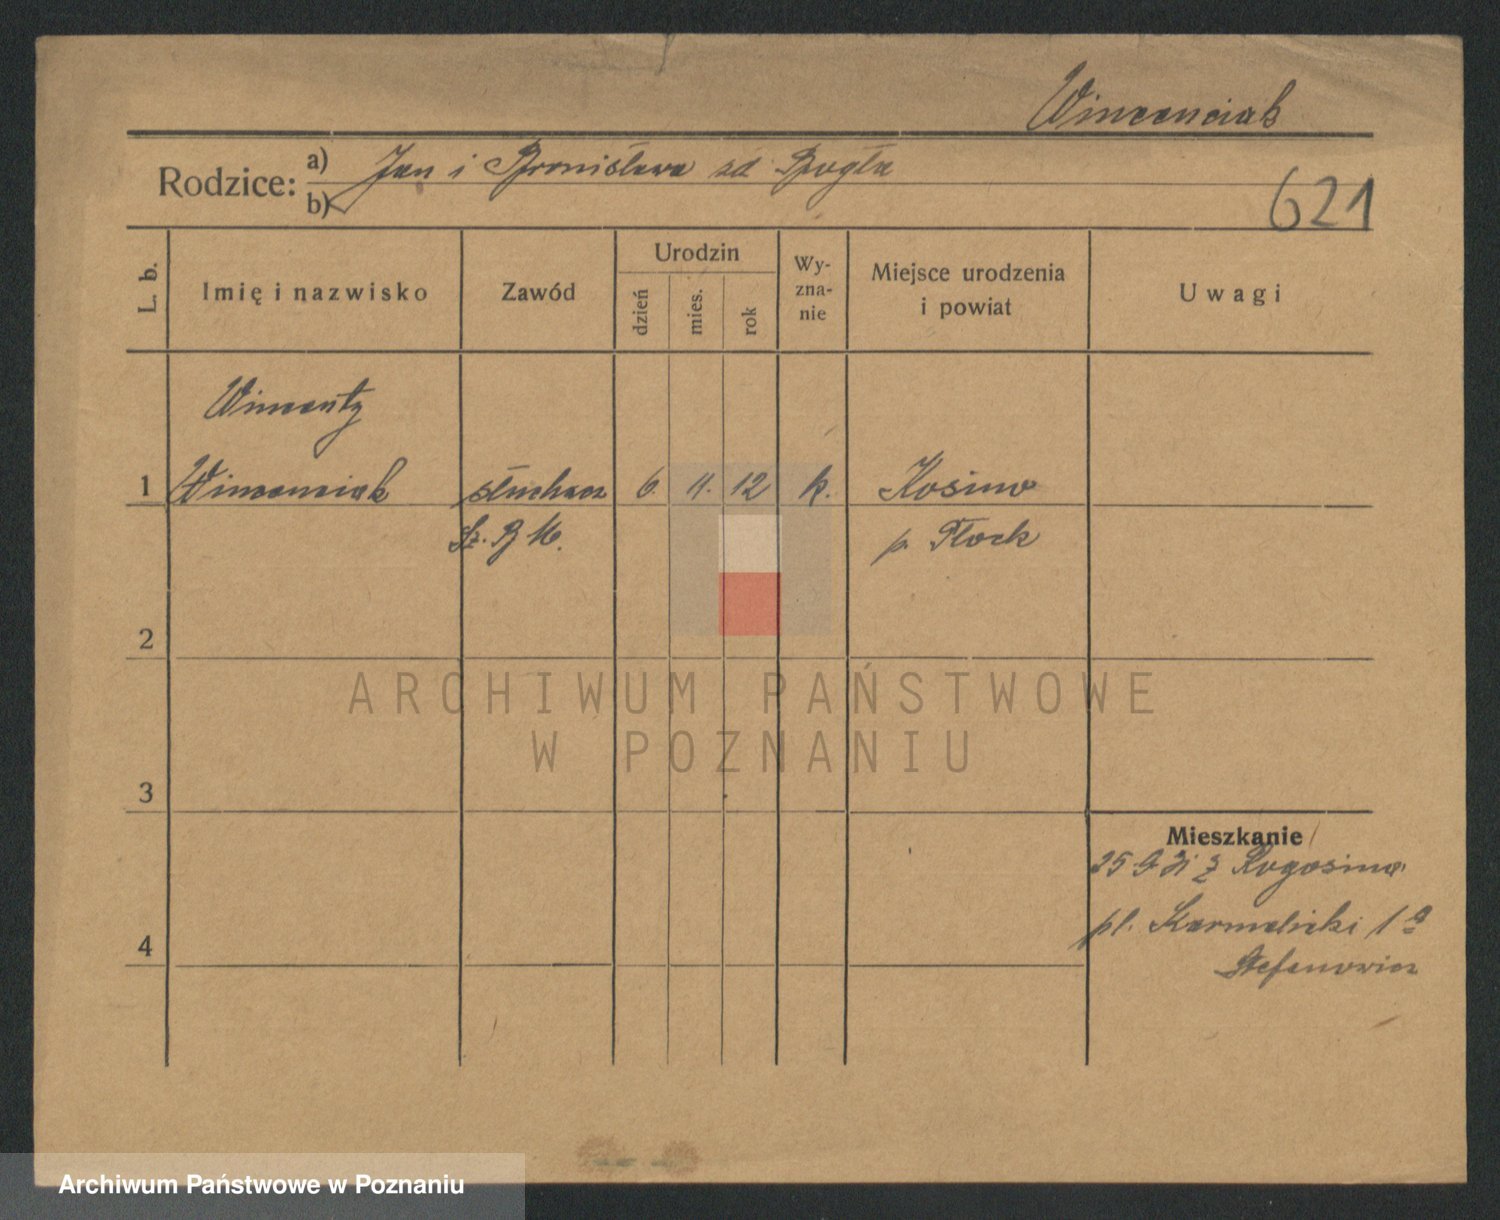 Wincenciak
Rodzice: a) Jan i Bronisława zd Bogła
b)
621
L. b.
Imię i nazwisko
Zawód
Urodzin
dzień
mies.
rok
Wy-
zna-
nie
Miejsce urodzenia
i powiat
Uwagi
Wincenty
1 Wincenciak słuchacz 6. 11. 12 k. Kosino
Sz. B M. p. Płock
2
ARCHIWUM PAŃSTWOWE
W POZNANIU
3
Mieszkanie
25 9 31 z Rogozina
4
pl. Karmelicki 1a
Stefanowicz
Archiwum Państwowe w Poznaniu